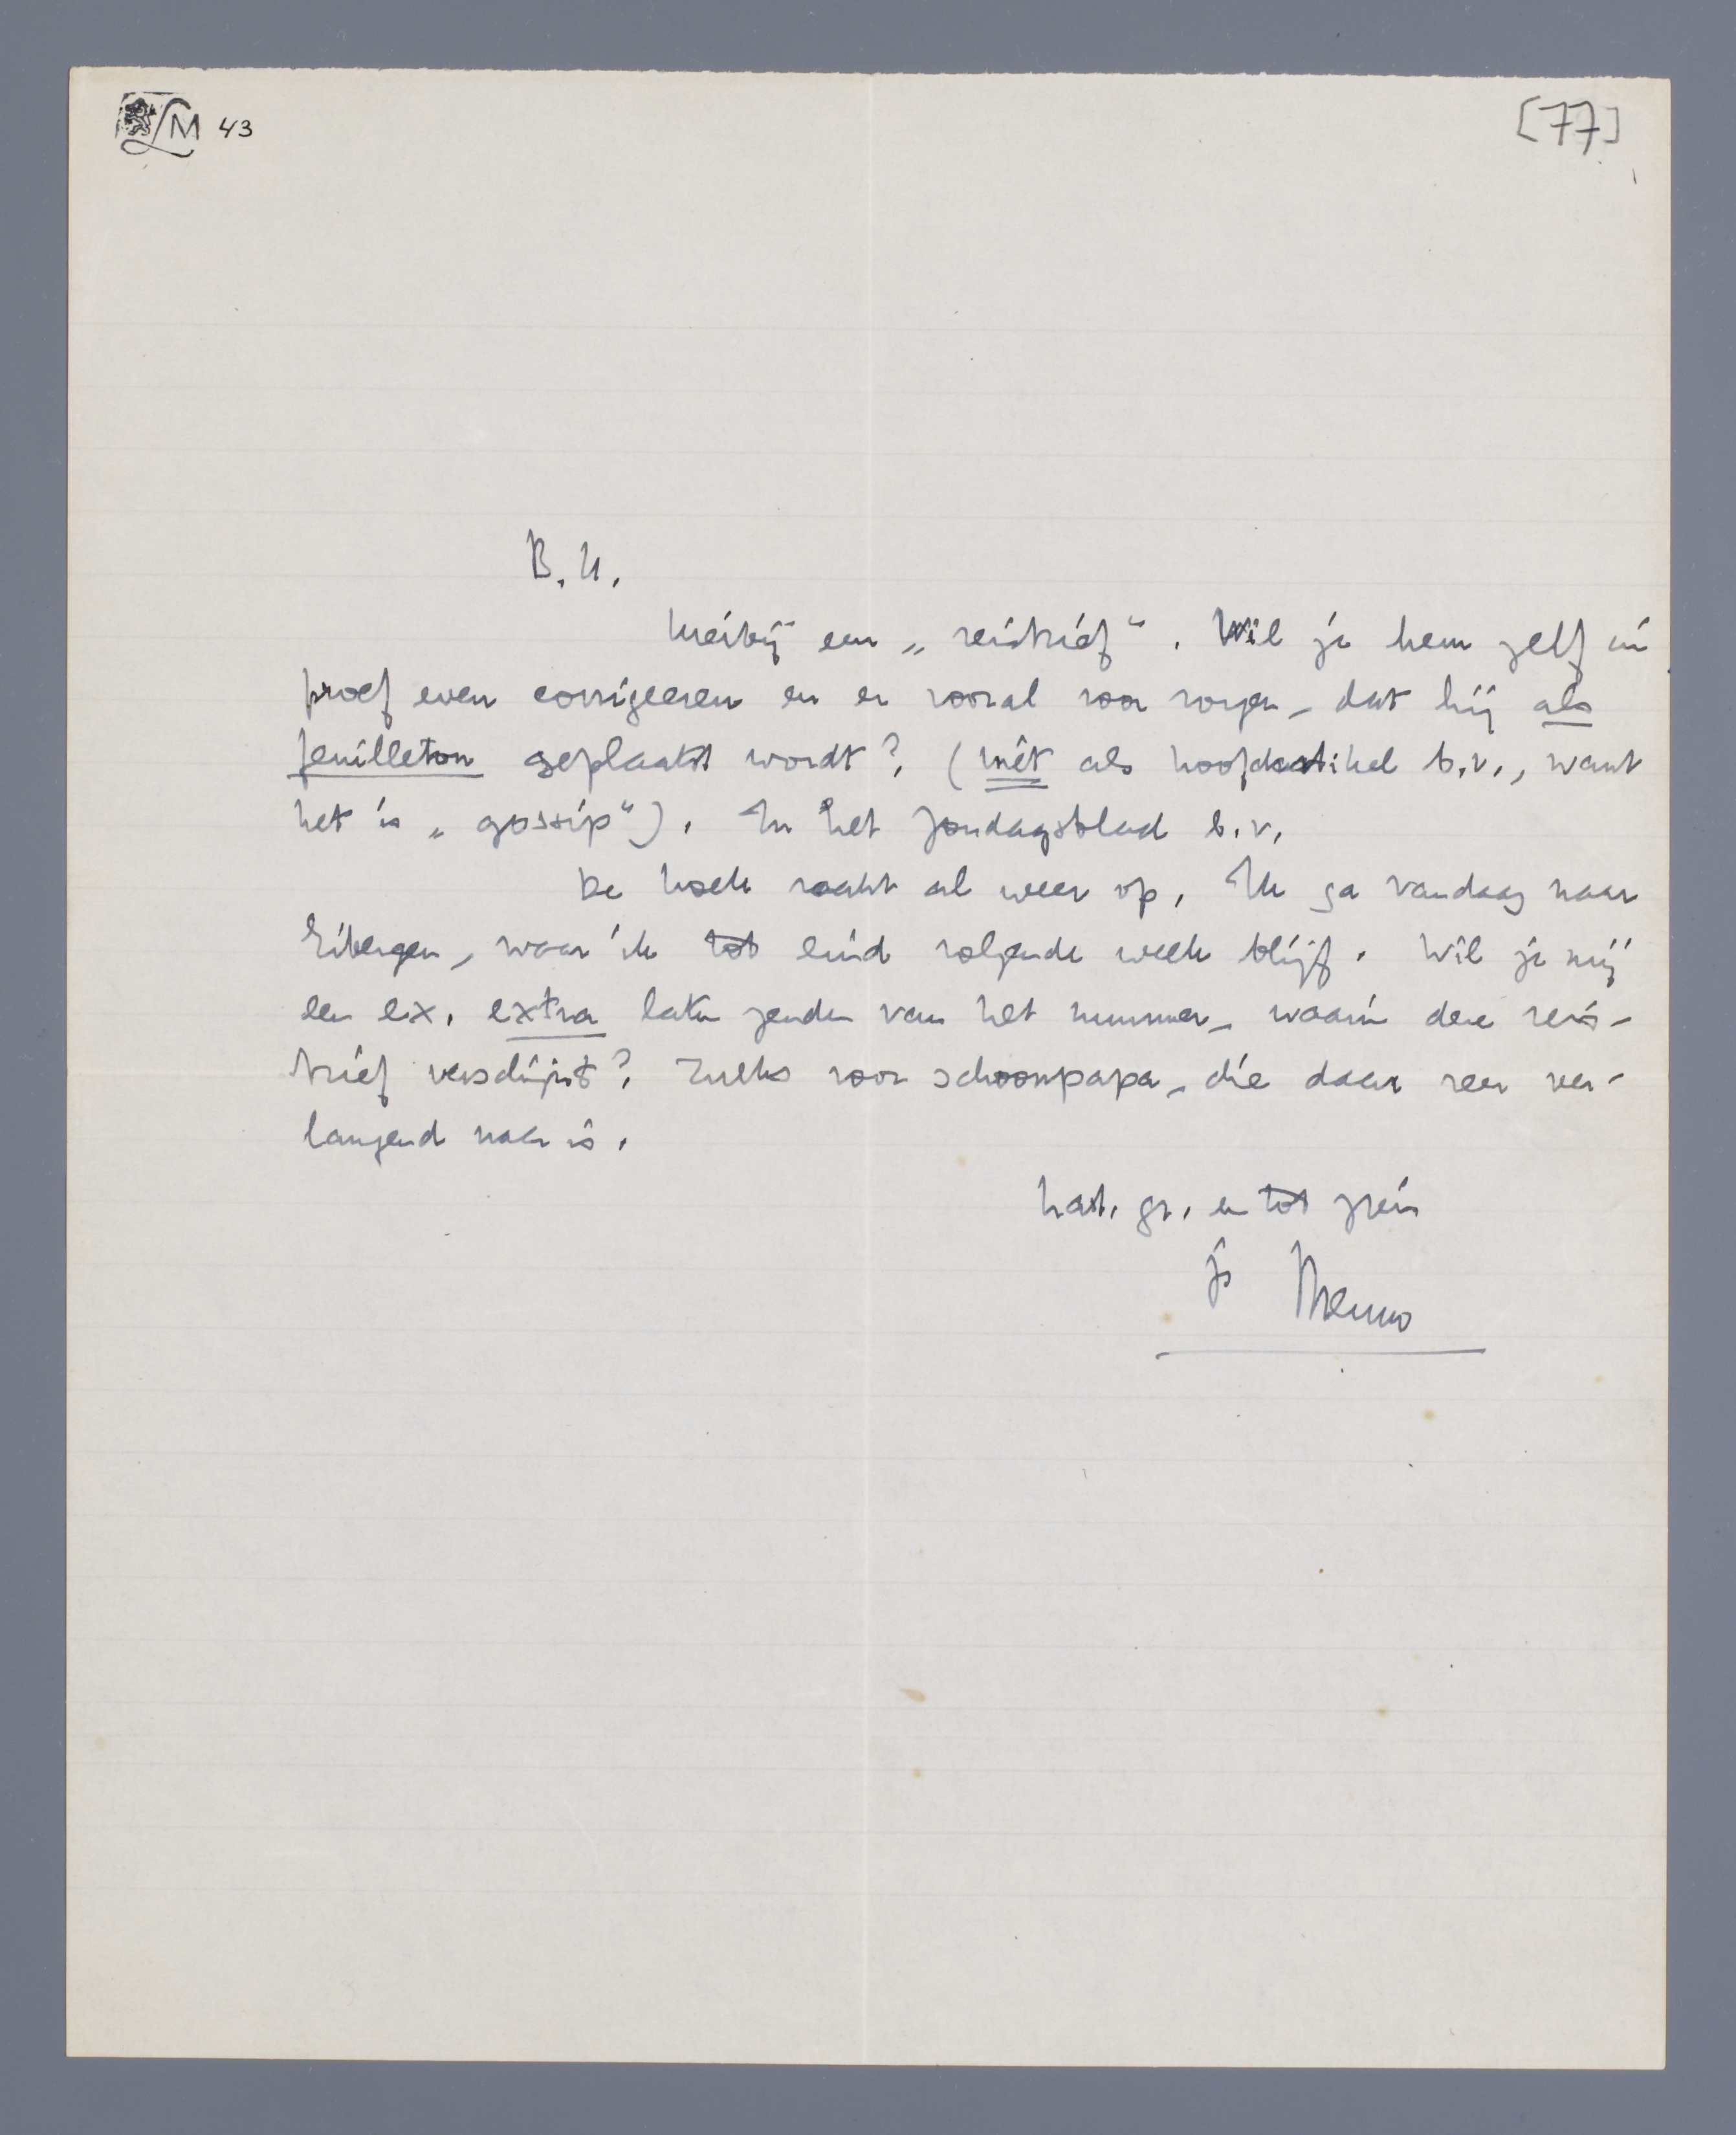 LM 43
[77]
B.H.
Hierbij een „reisbrief". Wil je hem zelf in
proef even corrigeeren en er vooral voor zorgen, dat hij als
feuilleton geplaatst wordt? (niet als hoofdartikel b.v., want
het is „gossip"). In het Zondagsblad b.v.
De hoek raakt al weer op. Ik ga vandaag naar
Eibergen, waar ik tot eind volgende week blijf. Wil je mij
een ex. extra laten zenden van het nummer, waarin deze reis-
brief verschijnt? Zulks voor schoonpapa, die daar zeer ver-
langend naar is.
hart. gr. en tot ziens
je Menno